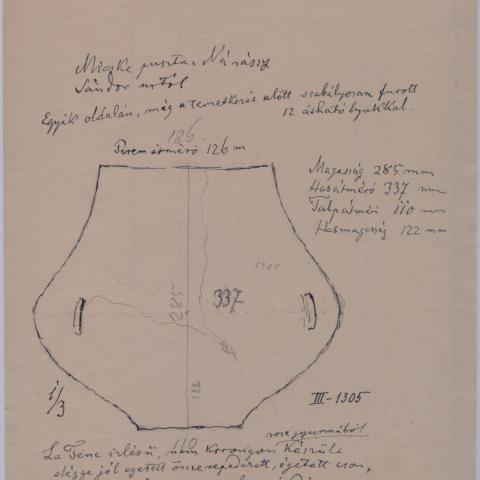 Micske puszta, Várassy
Sándor úrtól
Egyik oldalán, még a temetkezés előtt szabályosan furott
12 átható lyukkal.
126
Peremátmérő 126 m
Magasság 285 mm
Hasátmérő 337 mm
Talpátméri 110 mm
Hasmagasság 122 mm
1305
285
337
122
1/3
III-1305
110
rossz gyurmából
La Tène izlésű, nem korongon készült
eléggé jól egetett összerepedezett, égetett cson,